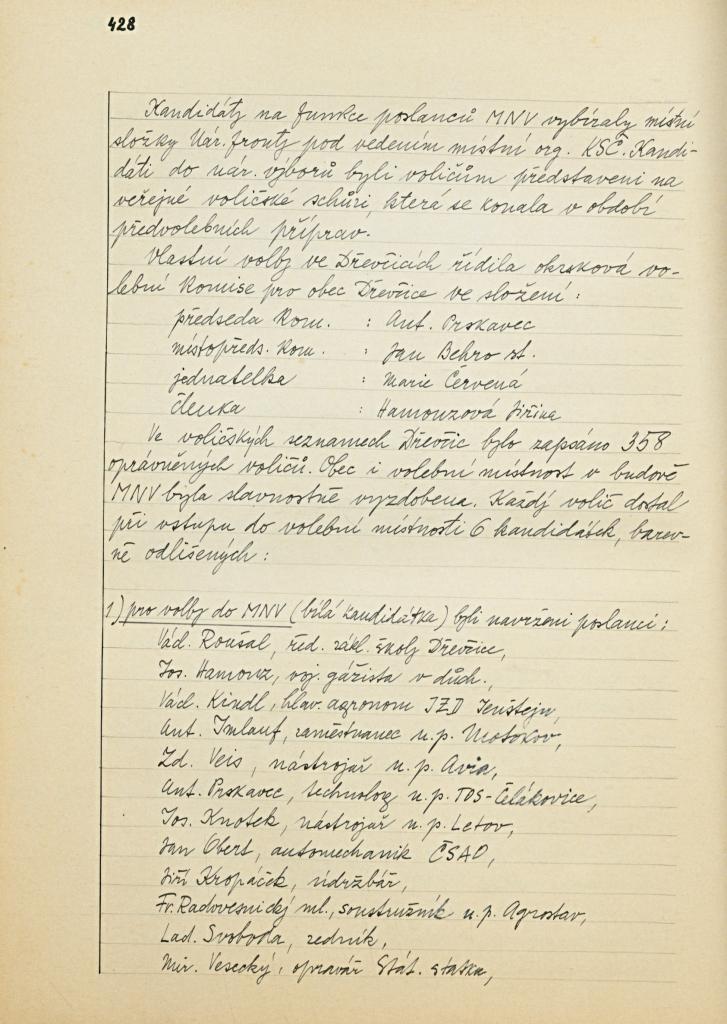 428
Kandidáty na funkce poslanců MNV vybíraly místní
složky Nár. fronty pod vedením místní org. KSČ. Kandi-
dáti do nár. výborů byli voličům představeni na
veřejné voličské schůzi, která se konala v období
předvolebních příprav.
Vlastní volby ve Dřevčicích řídila okrsková vo-
lební komise pro obec Dřevčice ve složení:
předseda kom. : Ant. Prskavec
místopředs. kom. : Jan Behro st.
jednatelka : Marie Červená
členka : Hamouzová Jiřina
Ve voličských seznamech Dřevčic bylo zapsáno 358
oprávněných voličů. Obec i volební místnost v budově
MNV byla slavnostně vyzdobena. Každý volič dostal
při vstupu do volební místnosti 6 kandidátek, barev-
ně odlišených:
1) pro volby do MNV (bílá kandidátka) byli navrženi poslanci:
Václ. Roušal, řed. zákl. školy Dřevčice,
Jos. Hamouz, voj. gážista v důch.,
Václ. Kindl, hlav. agronom JZD Jenštejn,
Ant. Imlauf, zaměstnanec n.p. Motokov,
Zd. Veis, nástrojař n.p. Avia,
Ant. Prskavec, technolog n.p. TOS-Čelákovice,
Jos. Knotek, nástrojař n.p. Letov,
Jan Obert, automechanik ČSAO,
Jiří Kropáček, údržbář,
Fr. Radovesnický ml., soustružník n.p. Agrostav,
Lad. Svoboda, zedník,
Mir. Vesecký, opravář Stát. statku,